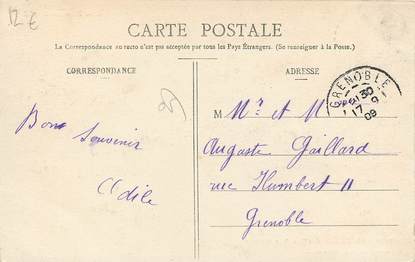 12 €
CARTE POSTALE
La Correspondance au recto n'est pas acceptée par tous les Pays Étrangers. (Se renseigner à la Poste.)
CORRESPONDANCE
ADRESSE
GRENOBLE
17 - 9
09
Bon souvenir
Odile
M Mr et M
Auguste Gaillard
rue Humbert II
Grenoble